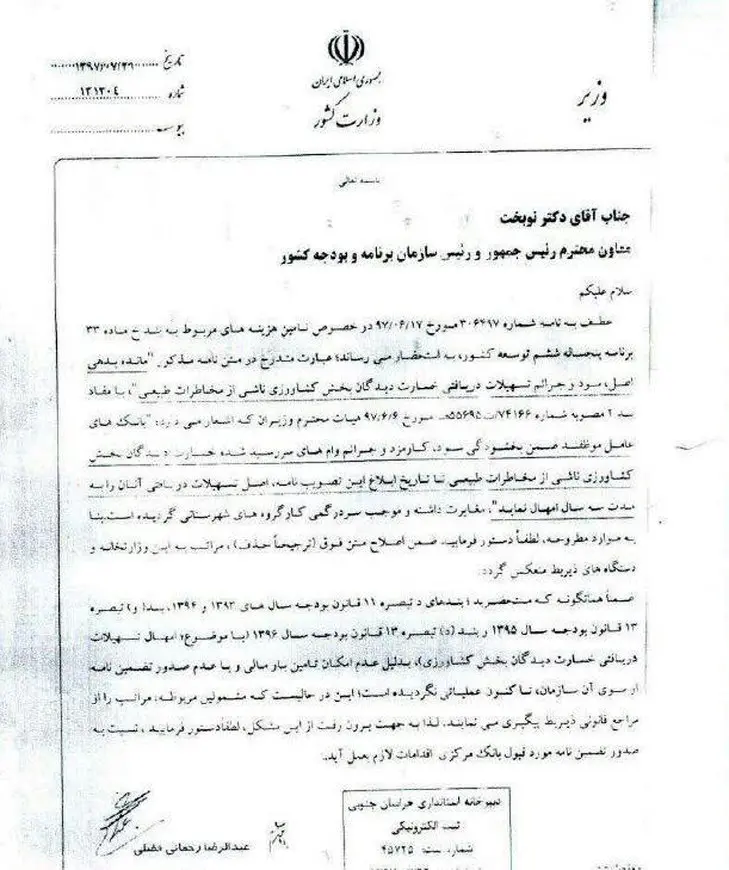 جمهوری اسلامی ایران
وزارت کشور
وزیر
تاریخ ۱۳۹۷/۰۷/۲۹
شماره ۱۳۱۳۰۴
پیوست
باسمه تعالی
جناب آقای دکتر نوبخت
معاون محترم رئیس جمهور و رئیس سازمان برنامه و بودجه کشور
سلام علیکم
عطف به نامه شماره ۳۰۶۴۹۷ مورخ ۹۷/۰۶/۱۷ در خصوص تامین هزینه های مربوط به بند خ ماده ۳۳
برنامه پنجساله ششم توسعه کشور، به استحضار می رساند؛ عبارت مندرج در متن نامه مذکور "مانده بدهی
اصل، سود و جرائم تسهیلات دریافتی خسارت دیدگان بخش کشاورزی ناشی از مخاطرات طبیعی"، با مفاد
بند ۲ مصوبه شماره ۷۴۱۶۶/ت۵۵۶۹۵هـ مورخ ۹۷/۶/۶ هیات محترم وزیران که اشعار می دارد: "بانک های
عامل موظفند ضمن بخشودگی سود، کارمزد و جرائم وام های سررسید شده خسارت دیدگان بخش
کشاورزی ناشی از مخاطرات طبیعی تا تاریخ ابلاغ این تصویب نامه، اصل تسهیلات دریافتی آنان را به
مدت سه سال امهال نماید"، مغایرت داشته و موجب سردرگمی کارگروه های شهرستانی گردیده است.بنا
به موارد مطروحه، لطفاً دستور فرمایید ضمن اصلاح متن فوق (ترجیحاً حذف)، مراتب به این وزارتخانه و
دستگاه های ذیربط منعکس گردد.
ضمناً همانگونه که مستحضرید؛ بندهای د تبصره ۱۱ قانون بودجه سال های ۱۳۹۳ و ۱۳۹۴، بند(و) تبصره
۱۳ قانون بودجه سال ۱۳۹۵ و بند (د) تبصره ۱۳ قانون بودجه سال ۱۳۹۶ (با موضوع؛ امهال تسهیلات
دریافتی خسارت دیدگان بخش کشاورزی)، بدلیل عدم امکان تامین بار مالی و یا عدم صدور تضمین نامه
از سوی آن سازمان، تا کنون عملیاتی نگردیده است؛ این در حالیست که مشمولین مربوطه، مراتب را از
مراجع قانونی ذیربط پیگیری می نمایند. لذا به جهت برون رفت از این مشکل، لطفاًدستور فرمایید، نسبت به
صدور تضمین نامه مورد قبول بانک مرکزی اقدامات لازم بعمل آید.
عبدالرضا رحمانی فضلی
دبیرخانه استانداری خراسان جنوبی
ثبت الکترونیکی
شماره ثبت: ۴۵۷۲۵